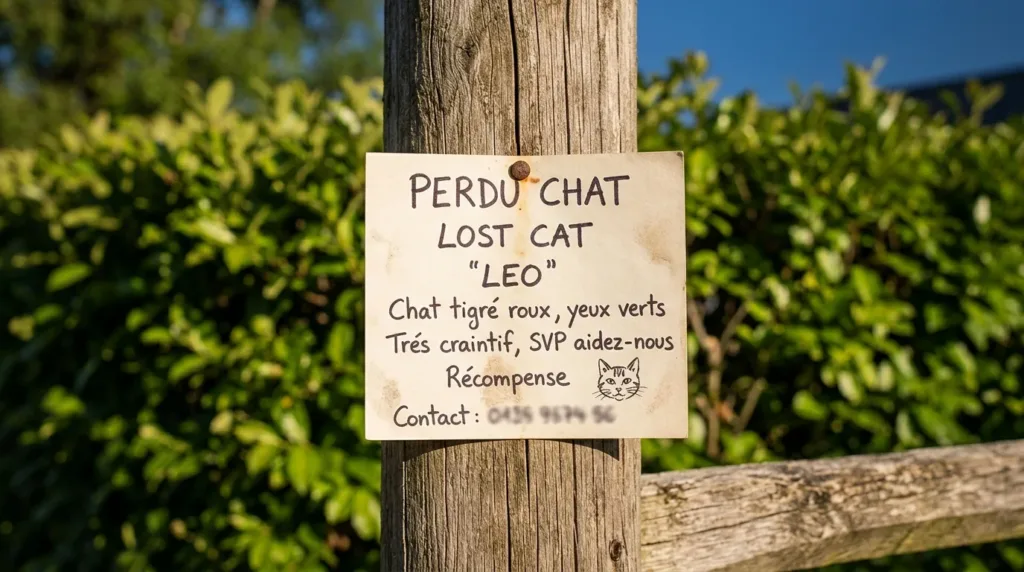 PERDU CHAT
LOST CAT
"LEO"
Chat tigré roux, yeux verts
Trés craintif, SVP aidez-nous
Récompense
Contact :